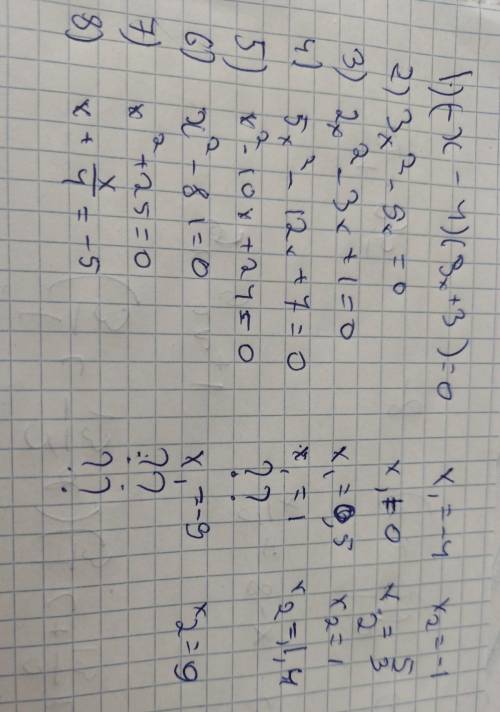 1) (-x - 4)(3x+3)=0 x₁=-4 x₂=-1
2) 3x²-5x=0 x₁=0 x₂=5/3
3) 2x²-3x+1=0 x₁=0,5 x₂=1
4) 5x²-12x+7=0 x₁=1 x₂=1,4
5) x²-10x+27=0 ??
6) x²-81=0 x₁=-9 x₂=9
7) x²+25=0 ??
8) x+x/4=-5 ??